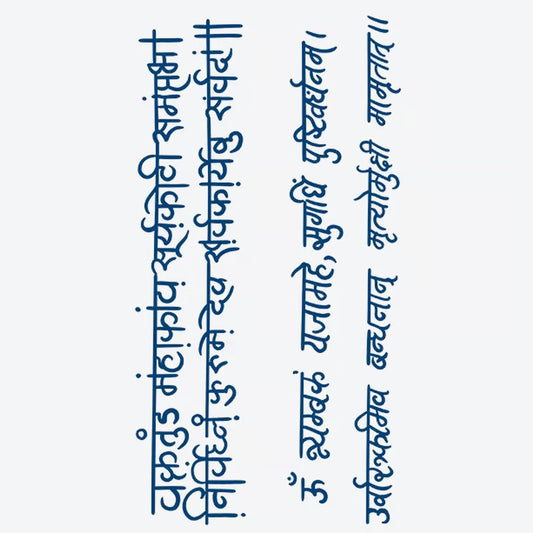 वक्रतुंड महाकाय सूर्यकोटी समप्रभा
निर्विघ्नं कुरुमे देव सर्वकार्येषु सर्वदा॥
ॐ त्र्यम्बकं यजामहे, सुगंधिं पुष्टिवर्धनम्।
उर्वारुकमिव बन्धनान् मृत्योर्मुक्षी मामृतात्॥